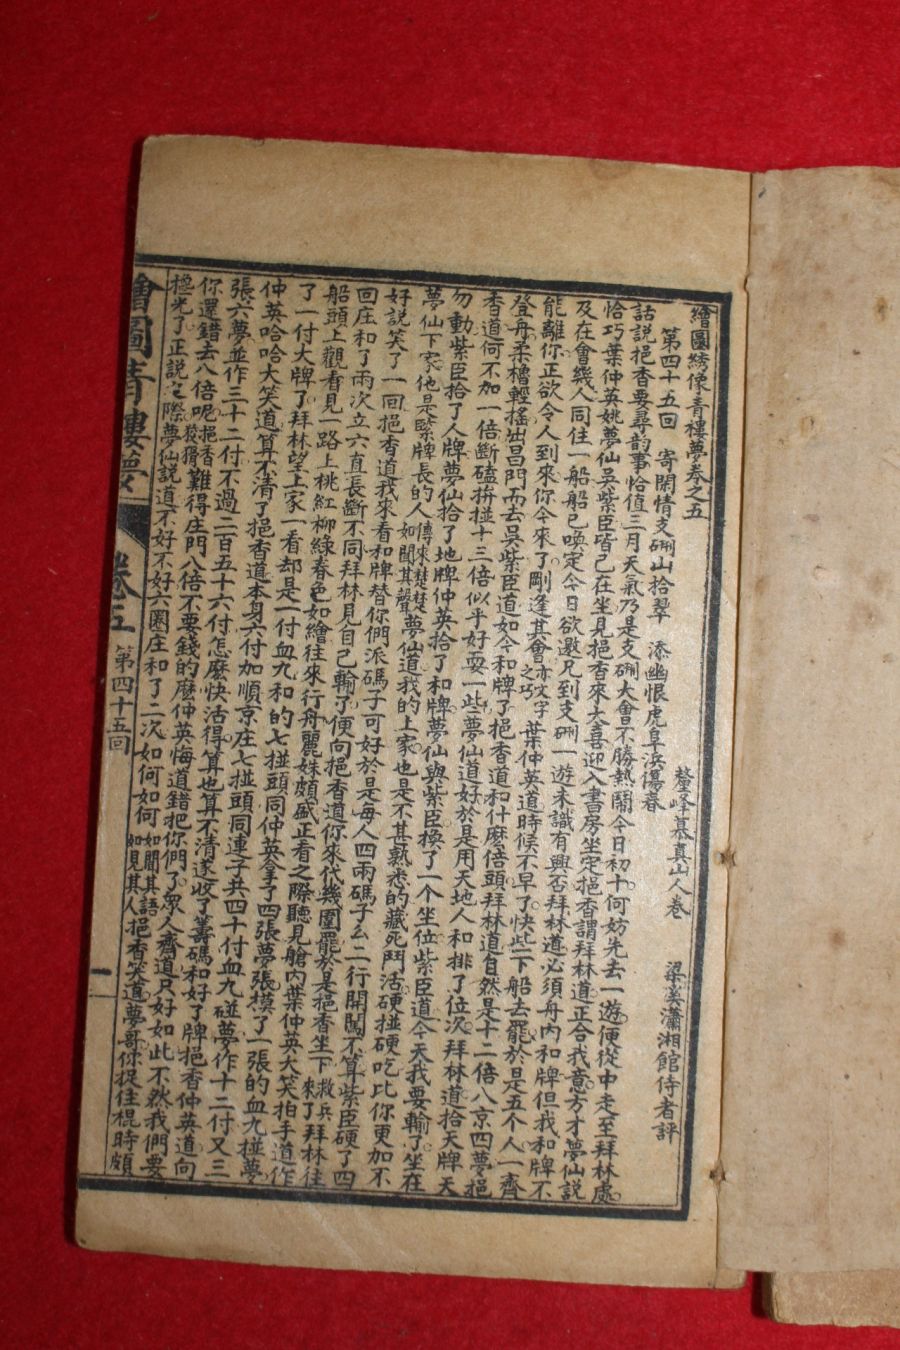 繪圖綉像青樓夢卷之五
釐峰慕真山人卷　梁溪瀟湘館侍者評
第四十五回　寄閒情支硎山拾翠　添幽恨虎阜浜傷春
話說挹香要尋韵事恰值三月天氣乃是支硎大會不勝熱鬧今日初十何妨先去一遊便從中走至拜林處
恰巧葉仲英姚夢仙吳紫臣皆已在坐見挹香來大喜迎入書房坐定挹香謂拜林道正合我意方才夢仙說
及在會幾人同住一船船已喚定今日欲邀兄到支硎一遊未識有興否拜林道必須舟內和牌但我和牌不
能離你正欲令人到來你今來了剛逢其會亦文字之巧葉仲英道時候不早了快些下船去罷於是五个人一齊
登舟柔櫓輕搖出昌門而去吳紫臣道如今和牌了挹香道和什麽倍頭拜林道自然是十二倍八京四夢挹
香道何不加一倍斷磕拚掽十三倍似乎好耍一些夢仙道好於是用天地人和排了位次拜林道拾天牌天
勿動紫臣拾了人牌夢仙拾了地牌仲英拾了和牌夢仙與紫臣換了一个坐位紫臣道今天我要輸了坐在
夢仙下家他是監牌長的人傳來楚楚如聞其聲夢仙道我的上家也是不甚熟悉的藏死鬥活硬掽硬吃比你更加不
好說笑了一回挹香道我來看和牌替你們派碼子可好於是每人四兩碼子么二行開闖不算紫臣硬了四
回庄和了兩次立六直長斷不同拜林見自己輸了便向挹香道你來代幾圍罷於是挹香坐下救兵來了拜林往
船頭上觀看見一路上桃紅柳綠春色如繪往來行舟麗姝頗盛正看之際聽見艙內葉仲英大笑拍手道作
了一付大牌了拜林望上家一看却是一付血九和的七掽頭同仲英拿了四張夢張摸了一張的血九掽夢
仲英哈哈大笑道算不清了挹香道本身六付加順京庄七掽頭同連子共四十付血九碰夢作十二付又三
張六夢並作三十二付不過二百五十六付怎麽快活得算也算不清遂收了籌碼和好了牌挹香仲英道向
你還錯去八倍呢挹香狡猾難得庄門八倍不要錢的麽仲英悔道錯把你們了眾人齊道只好如此不然我們要
穩光了正說之際夢仙說道不好不好六圈庄和了二次如何如何如聞其語如見其人挹香笑道夢哥你捉住棍時頗
繪圖青樓夢　卷五　第四十五回　一